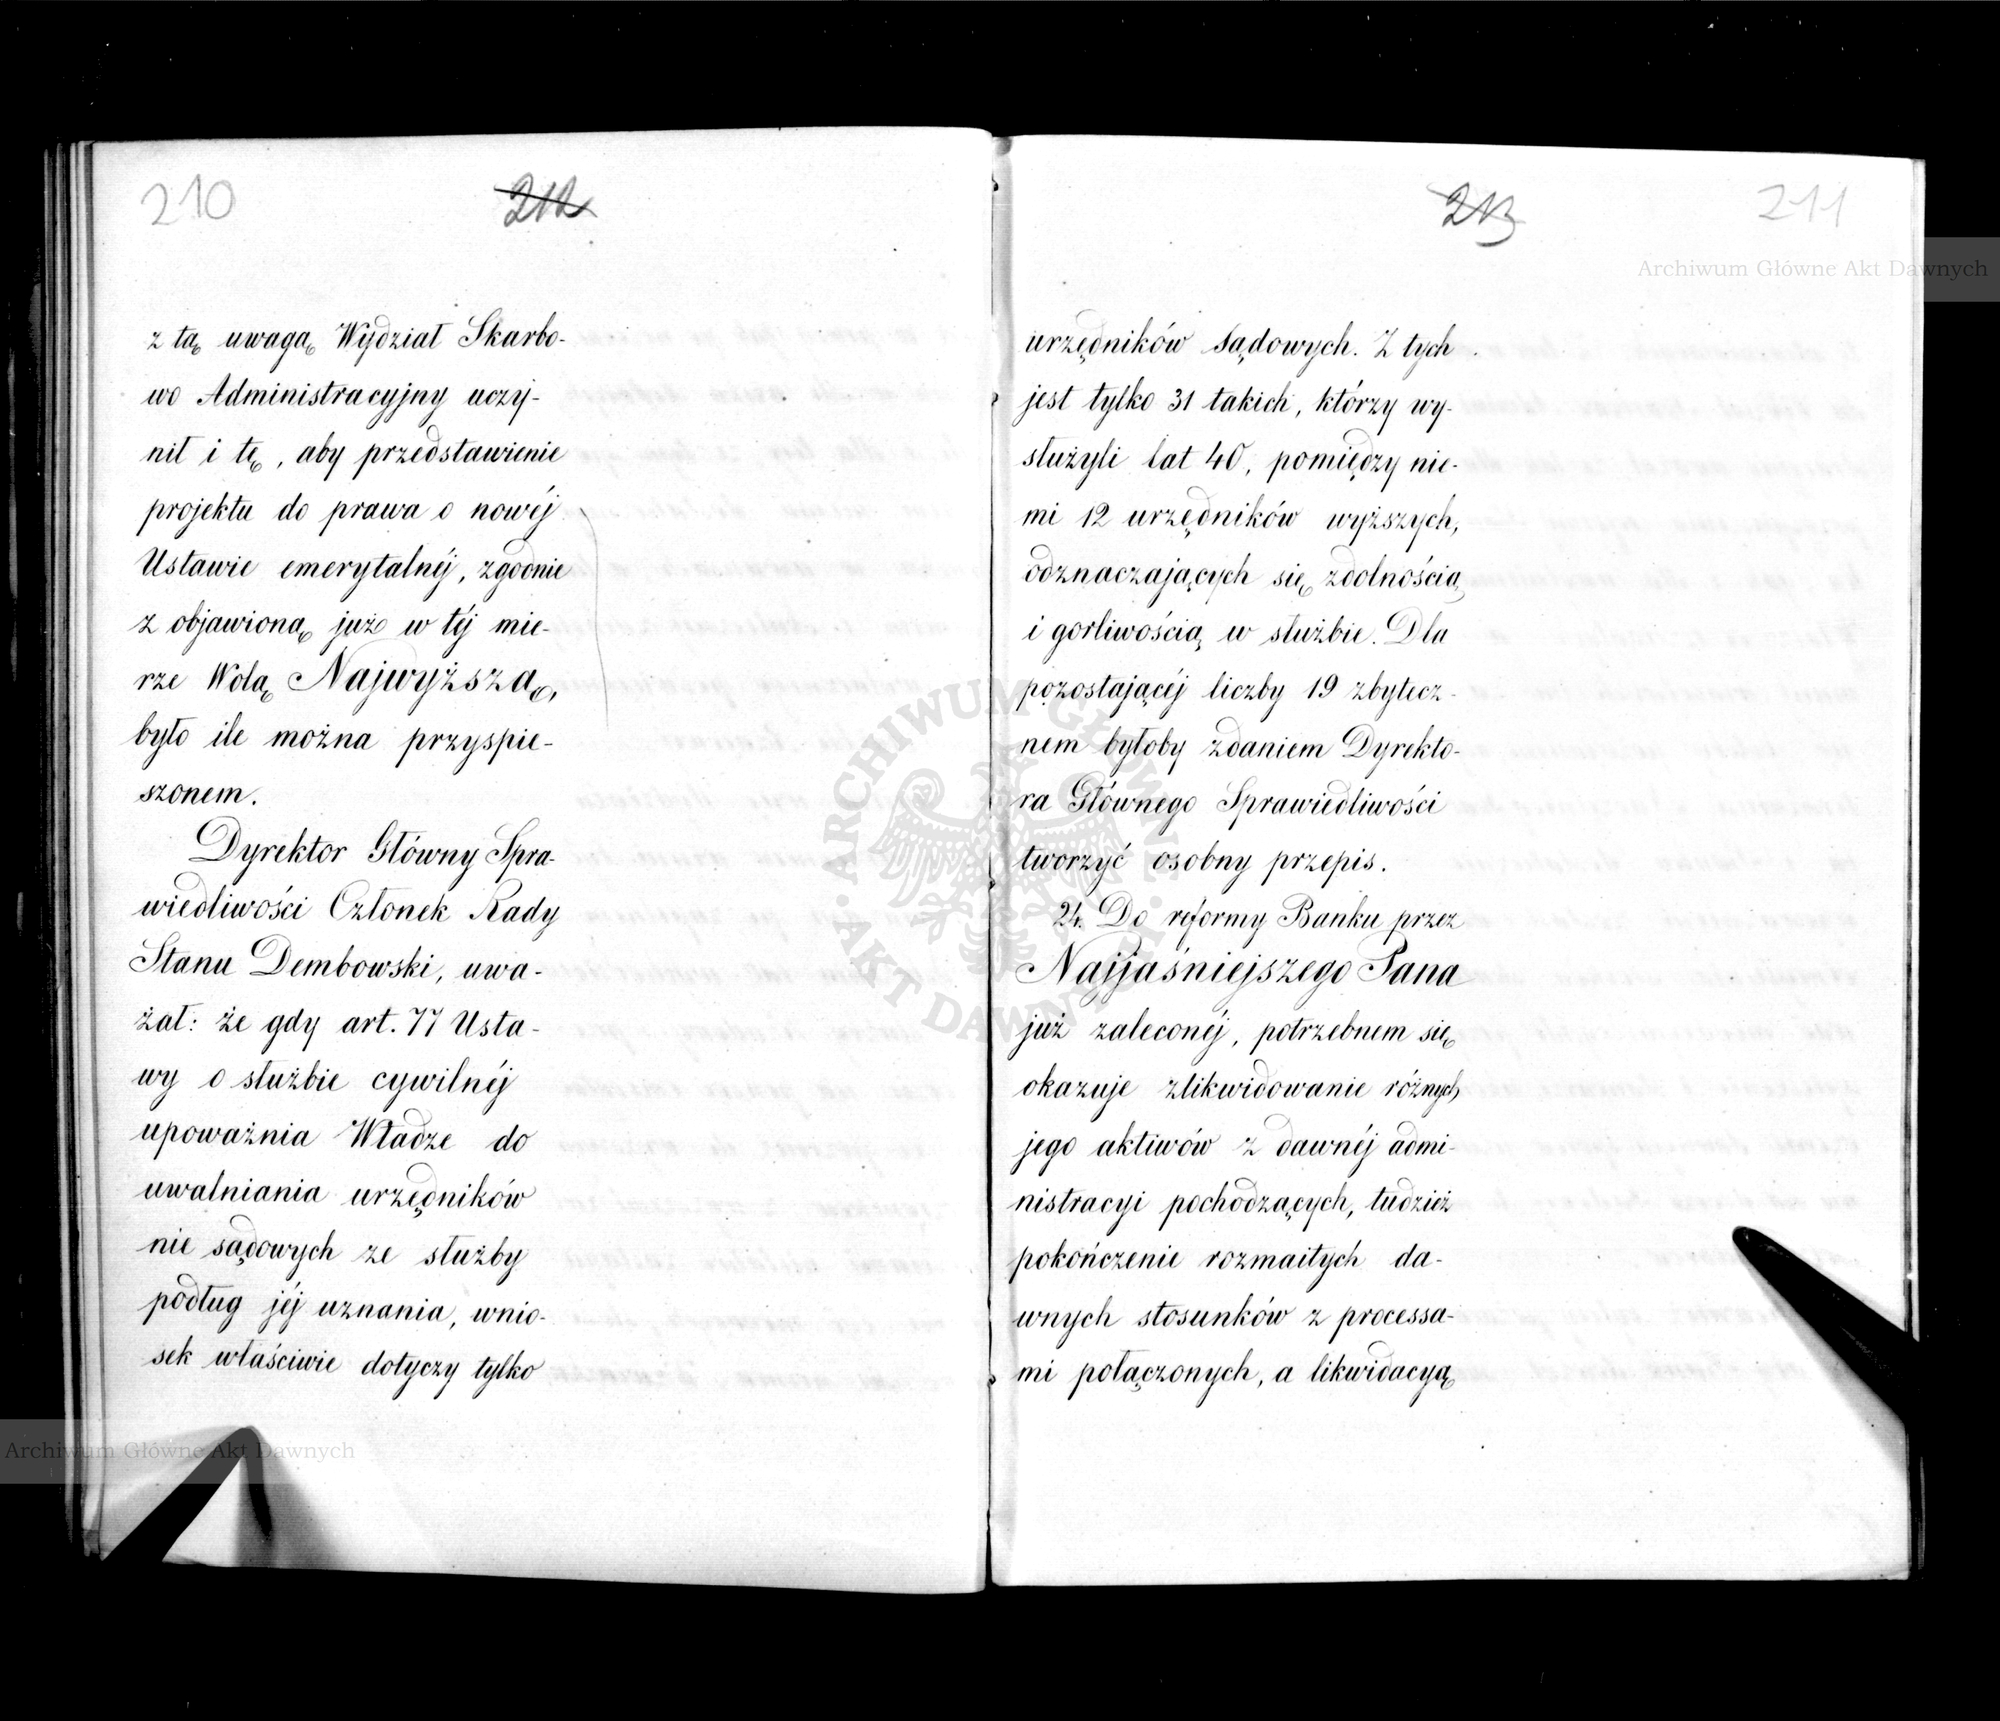 210
212
z tą uwagą Wydział Skarbo-
wo Administracyjny uczy-
nił i tę, aby przedstawienie
projektu do prawa o nowéj
Ustawie emerytalnéj, zgodnie
z objawioną już w téj mie-
rze Wolą Najwyższą,
było ile można przyspie-
szonem.
Dyrektor Główny Spra-
wiedliwości Członek Rady
Stanu Dembowski, uwa-
żał: że gdy art. 77 Usta-
wy o służbie cywilnéj
upoważnia Władze do
uwalniania urzędników
nie sądowych ze służby
podług jéj uznania, wnio-
sek właściwie dotyczy tylko
213
211
urzędników sądowych. Z tych
jest tylko 31 takich, którzy wy-
służyli lat 40, pomiędzy nie-
mi 12 urzędników wyższych,
odznaczających się zdolnością
i gorliwością w służbie. Dla
pozostającéj liczby 19 zbytecz-
nem byłoby zdaniem Dyrekto-
ra Głównego Sprawiedliwości
tworzyć osobny przepis.
24. Do reformy Banku przez
Najjaśniejszego Pana
już zaleconéj, potrzebnem się
okazuje zlikwidowanie różnych
jego aktiwów z dawnéj admi-
nistracyi pochodzących, tudzież
pokończenie rozmaitych da-
wnych stosunków z processa-
mi połączonych, a likwidacyą
Archiwum Główne Akt Dawnych
Archiwum Główne Akt Dawnych
ARCHIWUM GŁÓWNE AKT DAWNYCH